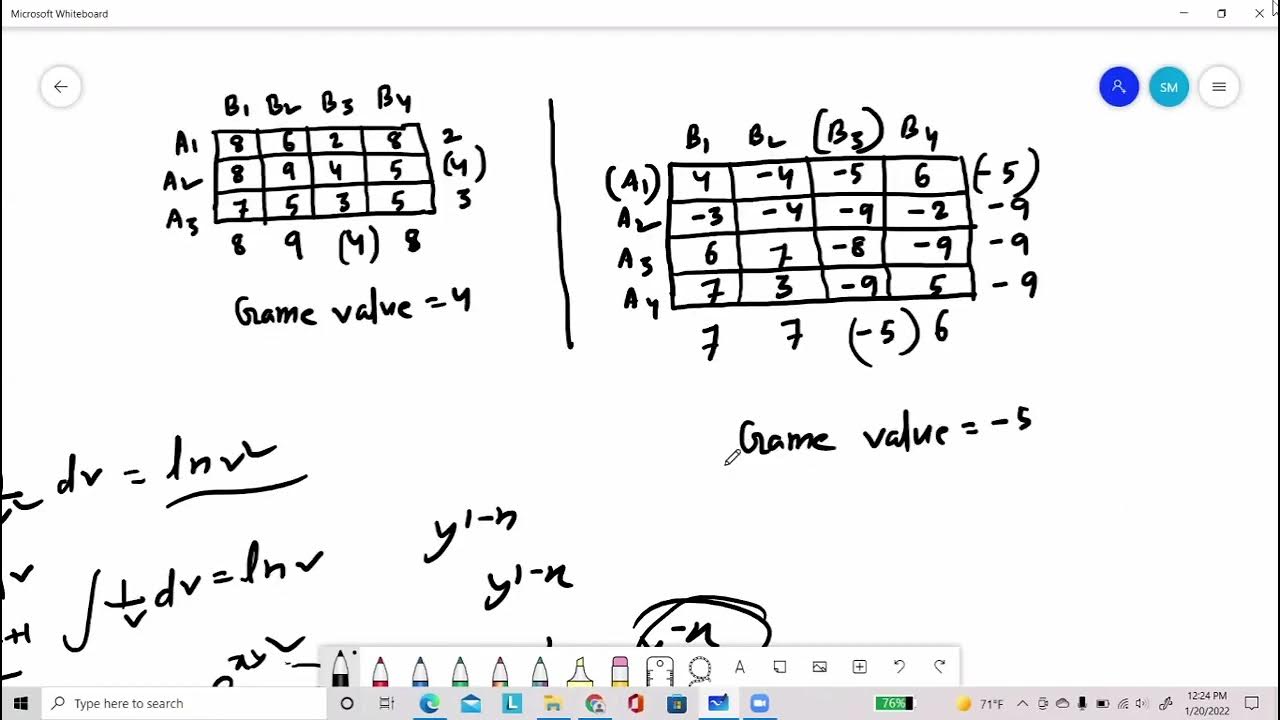 Microsoft Whiteboard
SM
B1 B2 B3 B4
A1 8 6 2 8 2
A2 8 9 4 5 (4)
A3 7 5 3 5 3
8 9 (4) 8
Game value = 4
B1 B2 (B3) B4
(A1) 4 -4 -5 6 (-5)
A2 -3 -4 -9 -2 -9
A3 6 7 -8 -9 -9
A4 7 3 -9 5 -9
7 7 (-5) 6
Game value = -5
dv = ln v²
∫ 1/v dv = ln v
y^1-n
y^1-n
-n
+1
A
Type here to search
76%
71°F
12:24 PM
1/20/2022